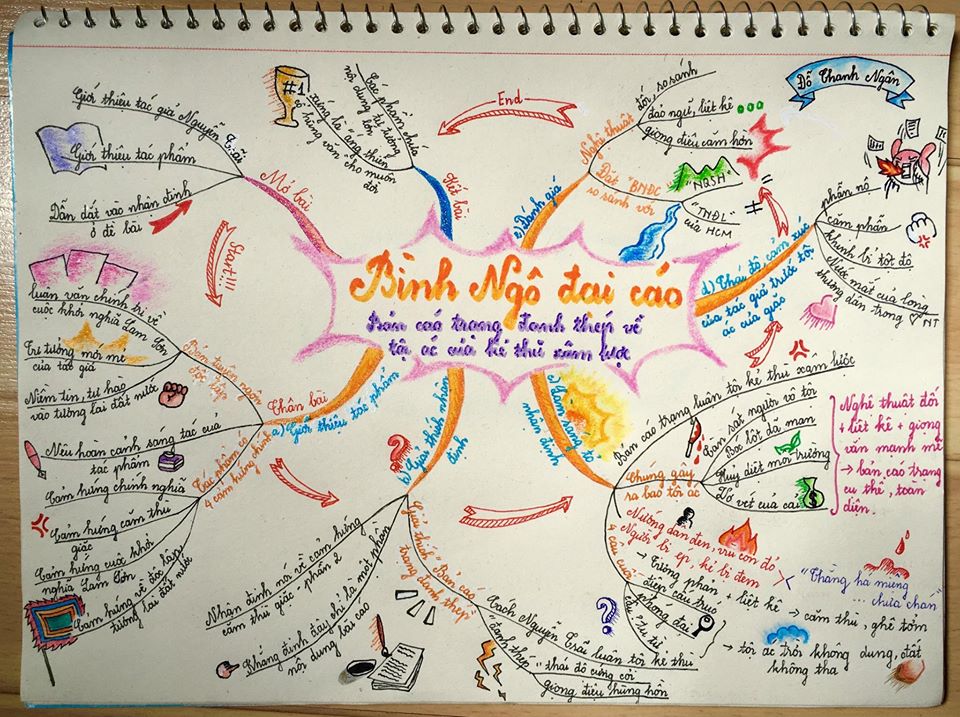 Bình Ngô đại cáo
bản cáo trạng đanh thép về
tội ác của kẻ thù xâm lược
Đỗ Thanh Ngân
Start!!!
Mở bài
Giới thiệu tác giả Nguyễn Trãi
Giới thiệu tác phẩm
Dẫn dắt vào nhận định
ở đề bài
Thân bài
a) Giới thiệu tác phẩm
Bản tuyên ngôn
độc lập
luận văn chính trị về
cuộc khởi nghĩa Lam Sơn
Tư tưởng mới mẻ
của tác giả
Niềm tin, tự hào
vào tương lai đất nước
Nêu hoàn cảnh sáng tác của
tác phẩm
Tác phẩm có
4 cảm hứng chính
Cảm hứng chính nghĩa
Cảm hứng căm thù
giặc
Cảm hứng cuộc khởi
nghĩa Lam Sơn
Cảm hứng về độc lập
tương lai đất nước
b) Giải thích nhận
định
Nhận định nói về cảm hứng
căm thù giặc - phần 2
Khẳng định đây chỉ là một phần
nội dung bài cáo
Giải thích "Bản cáo
trạng đanh thép"
Cách Nguyễn Trãi luận tội kẻ thù
"đanh thép"
thái độ cứng cỏi
giọng điệu hùng hồn
c) Làm sáng tỏ
nhận định
Bản cáo trạng luận tội kẻ thù xâm lược
Chúng gây
ra bao tội ác
Tàn sát người vô tội
Bóc lột dã man
Huỷ diệt môi trường
Vơ vét của cải
Nghệ thuật đối
+ liệt kê + giọng
văn mạnh mẽ
→ bản cáo trạng
cụ thể, toàn
diện.
4 câu cuối
Nướng dân đen, vùi con đỏ
Người bị ép, kẻ bị đem
→ Tương phản + liệt kê
"Thằng há miệng
... chưa chán"
→ căm thù, ghê tởm
điệp cấu trúc
phóng đại
câu hỏi tu từ
→ tội ác trời không dung, đất
không tha
d) Thái độ, cảm xúc
của tác giả trước tội
ác của giặc
phẫn nộ
căm phẫn
khinh bỉ tột độ
Nước mắt của lòng
thương dân trong NT
e) Đánh giá
Nghệ thuật
đối, so sánh
đảo ngữ, liệt kê
giọng điệu căm hờn
Đặt "BNĐC"
so sánh với
"NQSH"
=
"TNĐL"
của HCM
≠
End
Kết bài
Tác phẩm chứa
nội dung tư tưởng lớn
xứng là áng thiên
cổ hùng văn
cho muôn
đời
#1